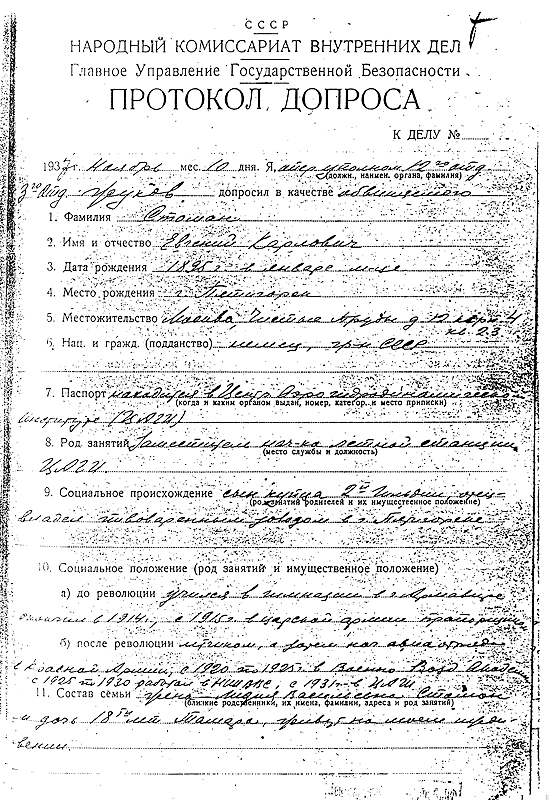 СССР
НАРОДНЫЙ КОМИССАРИАТ ВНУТРЕННИХ ДЕЛ
Главное Управление Государственной Безопасности
ПРОТОКОЛ ДОПРОСА
К ДЕЛУ №
1937 г. Ноября мес. 10 дня. Я,
(должн., наимен. органа, фамилия)
допросил в качестве обвиняемого
1. Фамилия Стоман
2. Имя и отчество Евгений Карлович
3. Дата рождения 1895 г. в январе м-це
4. Место рождения г. Пятигорск
5. Местожительство Москва, Чистые Пруды д. 12 корп. 4
кв. 23
6. Нац. и гражд. (подданство) немец, гр-н СССР
7. Паспорт находится в Центр. Аэрогидродинамическом
(когда и каким органом выдан, номер, категор. и место приписки)
институте (ЦАГИ)
8. Род занятий Заместитель нач-ка летной станции
(место службы и должность)
ЦАГИ
9. Социальное происхождение сын купца 2й гильдии, отец
(род занятий родителей и их имущественное положение)
владел пивоваренным заводом в г. Пятигорске
10. Социальное положение (род занятий и имущественное положение)
а) до революции учился в гимназии в г. Армавире
окончил в 1914 г., с 1915 г. в царской армии прапорщик
б) после революции летчиком, а затем нач. авиаотряда
в Красной Армии, с 1920 по 1925 г. в Военно Возд.
с 1925 по 1930 работал в с 1931 г. в ЦАГИ
11. Состав семьи жена - Лидия Васильевна Стоман
(близкие родственники, их имена, фамилии, адреса и род занятий)
и дочь 18 лет Тамара, живут на моем иждивении